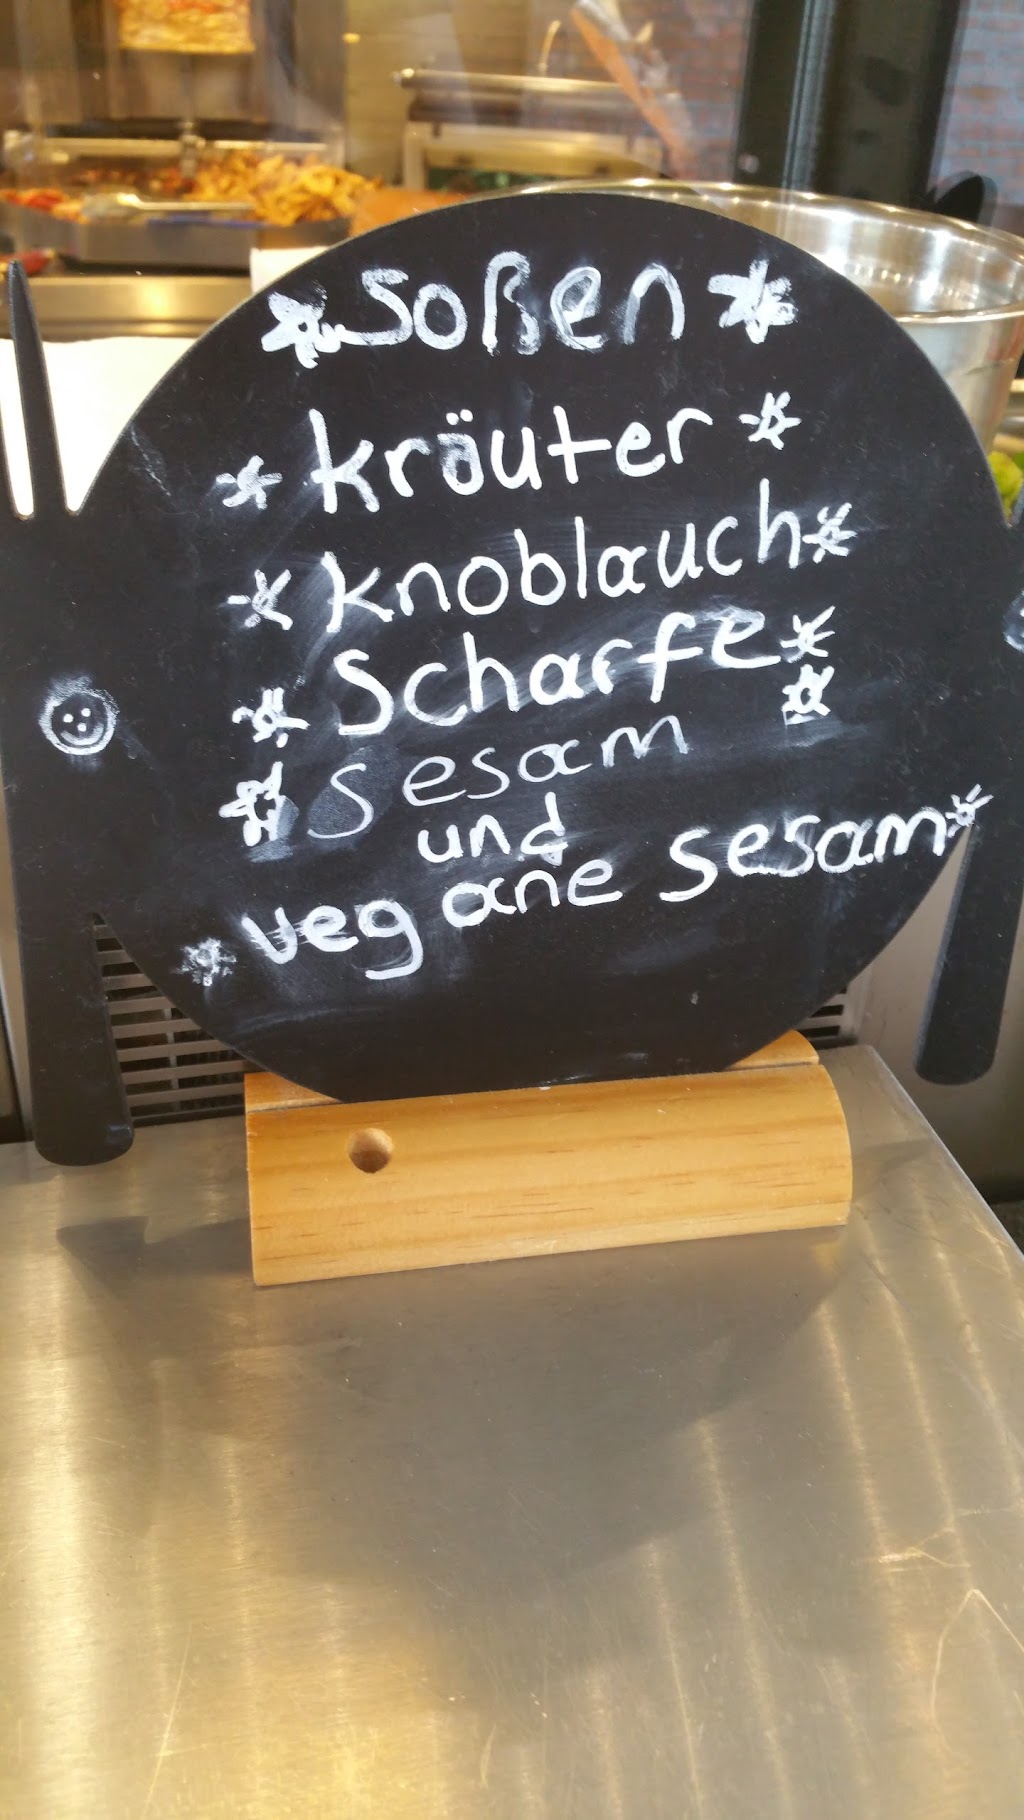 Soßen
Kräuter
Knoblauch
Scharfe
Sesam
und
vegane Sesam